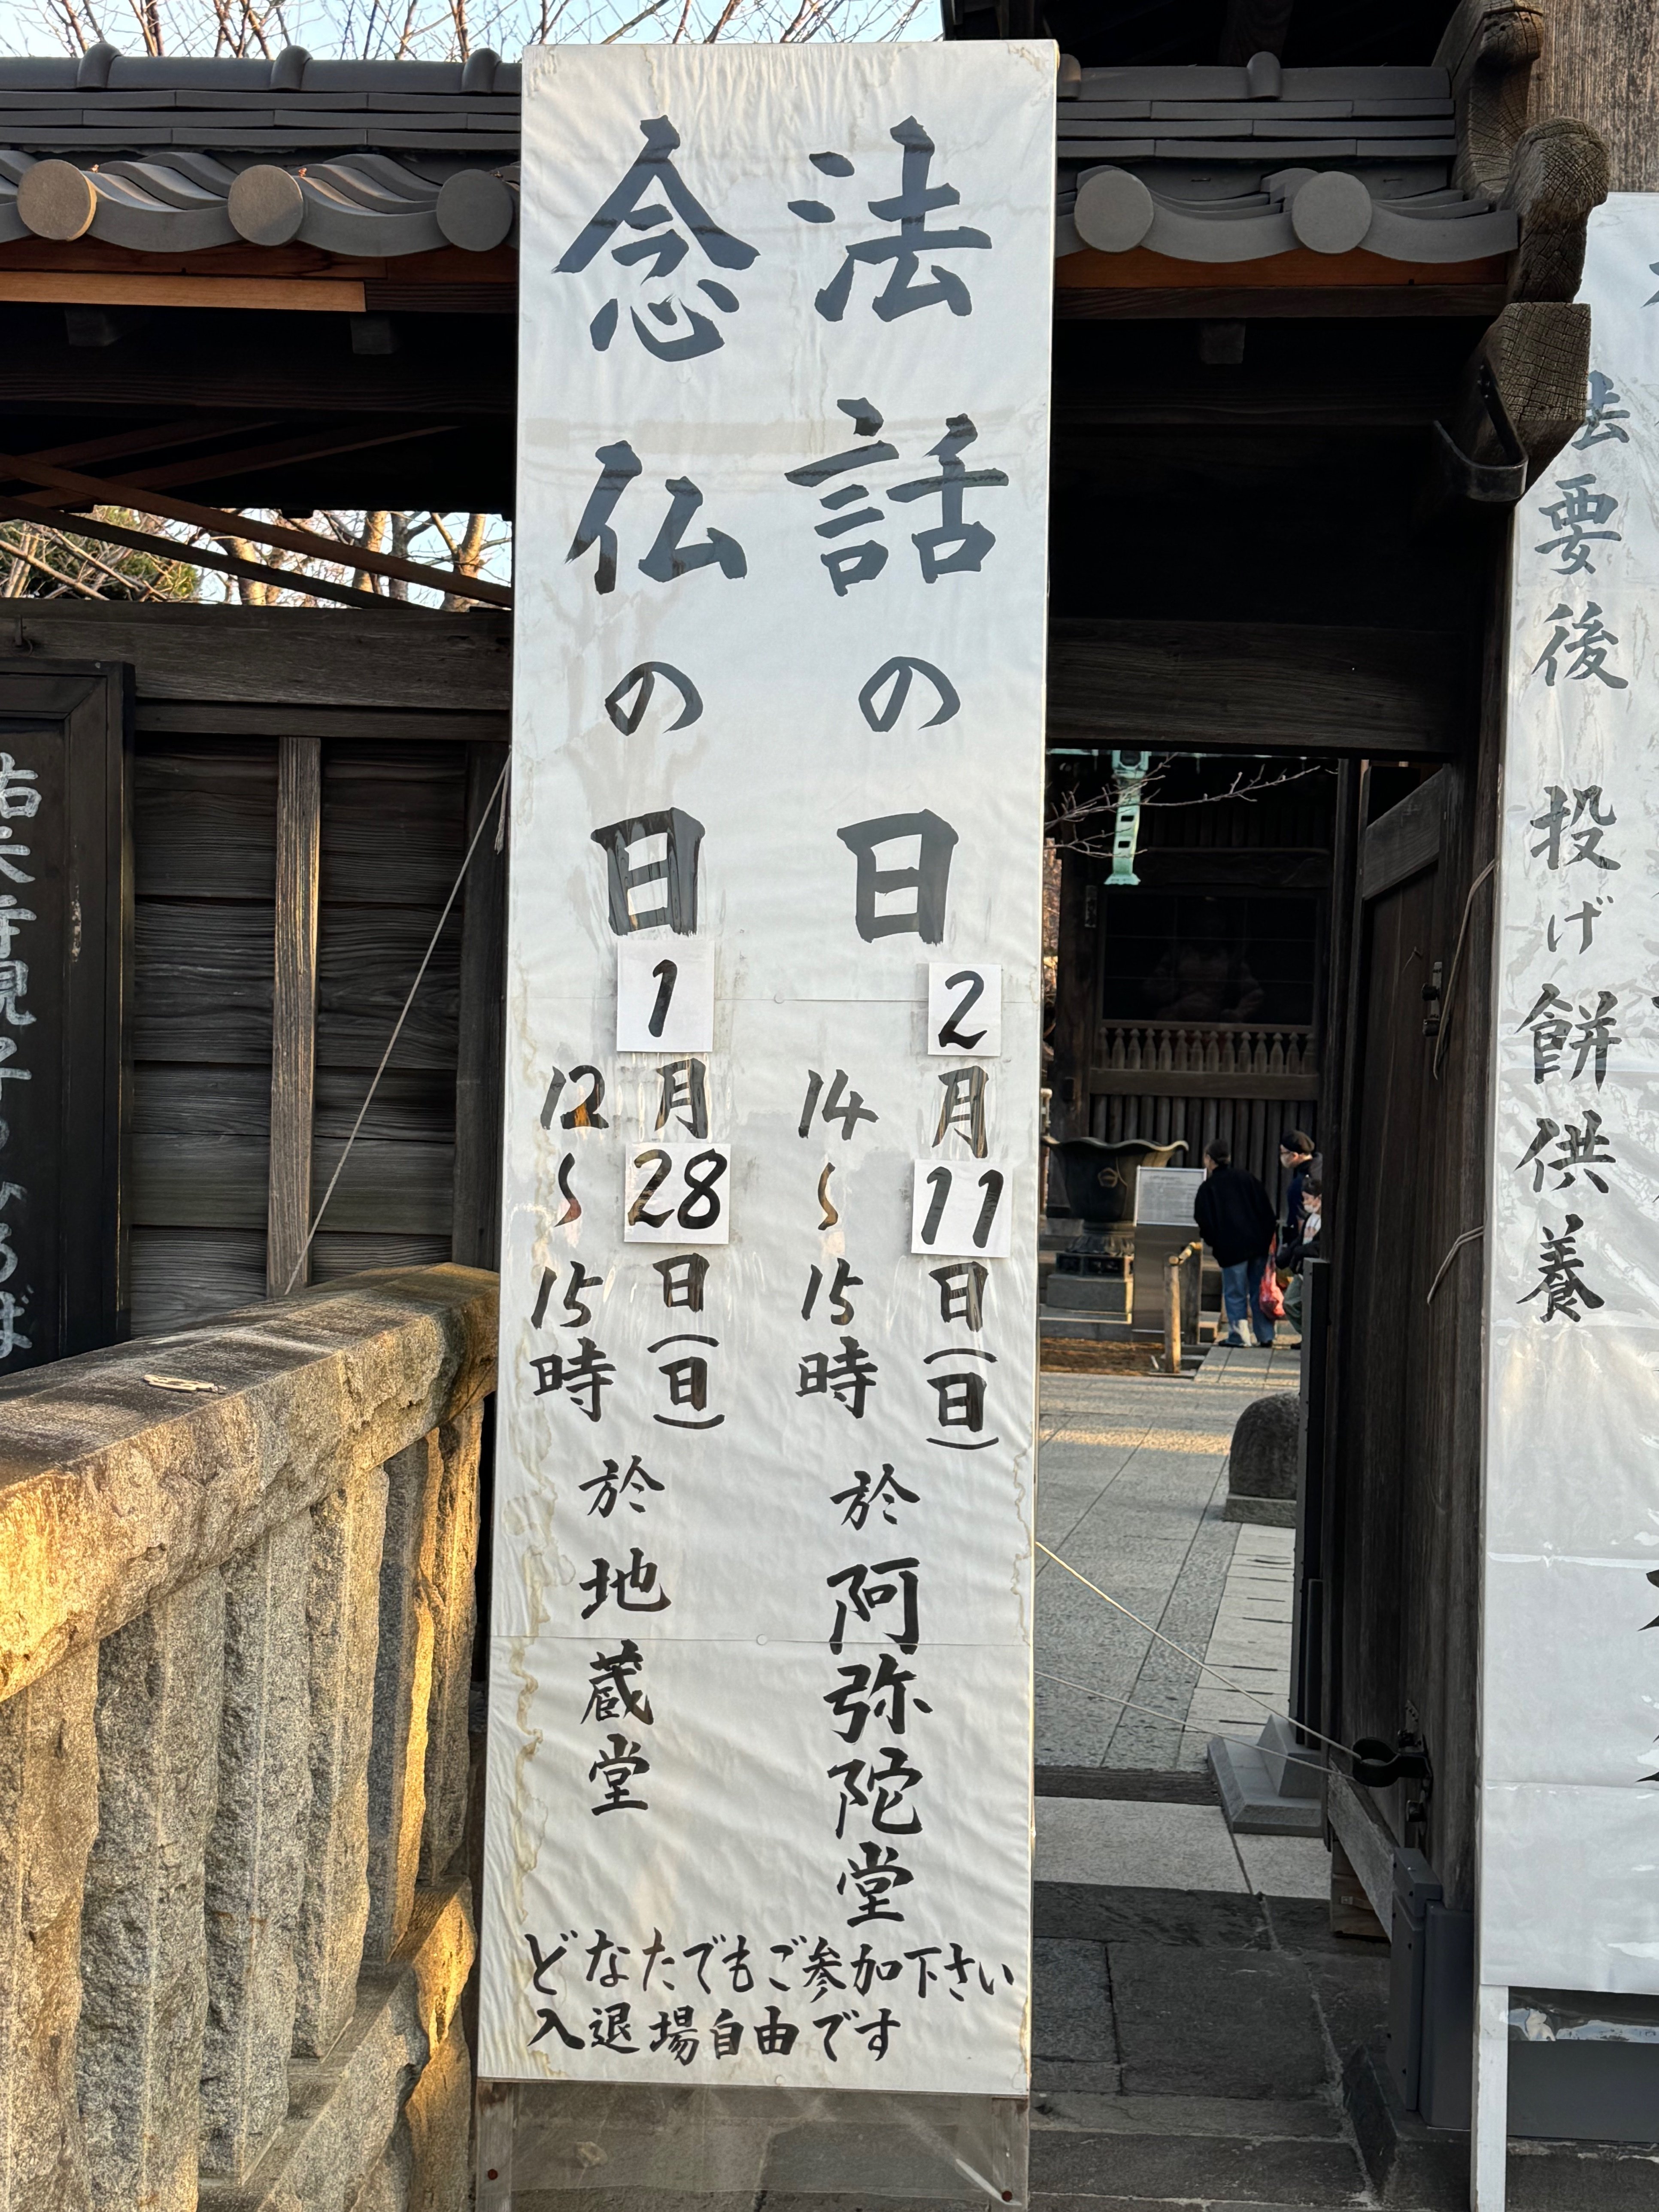 法話の日
2月11日(日)
14〜15時
於 阿弥陀堂
念仏の日
1月28日(日)
12〜15時
於 地蔵堂
どなたでもご参加下さい
入退場自由です
法要後 投げ餅供養